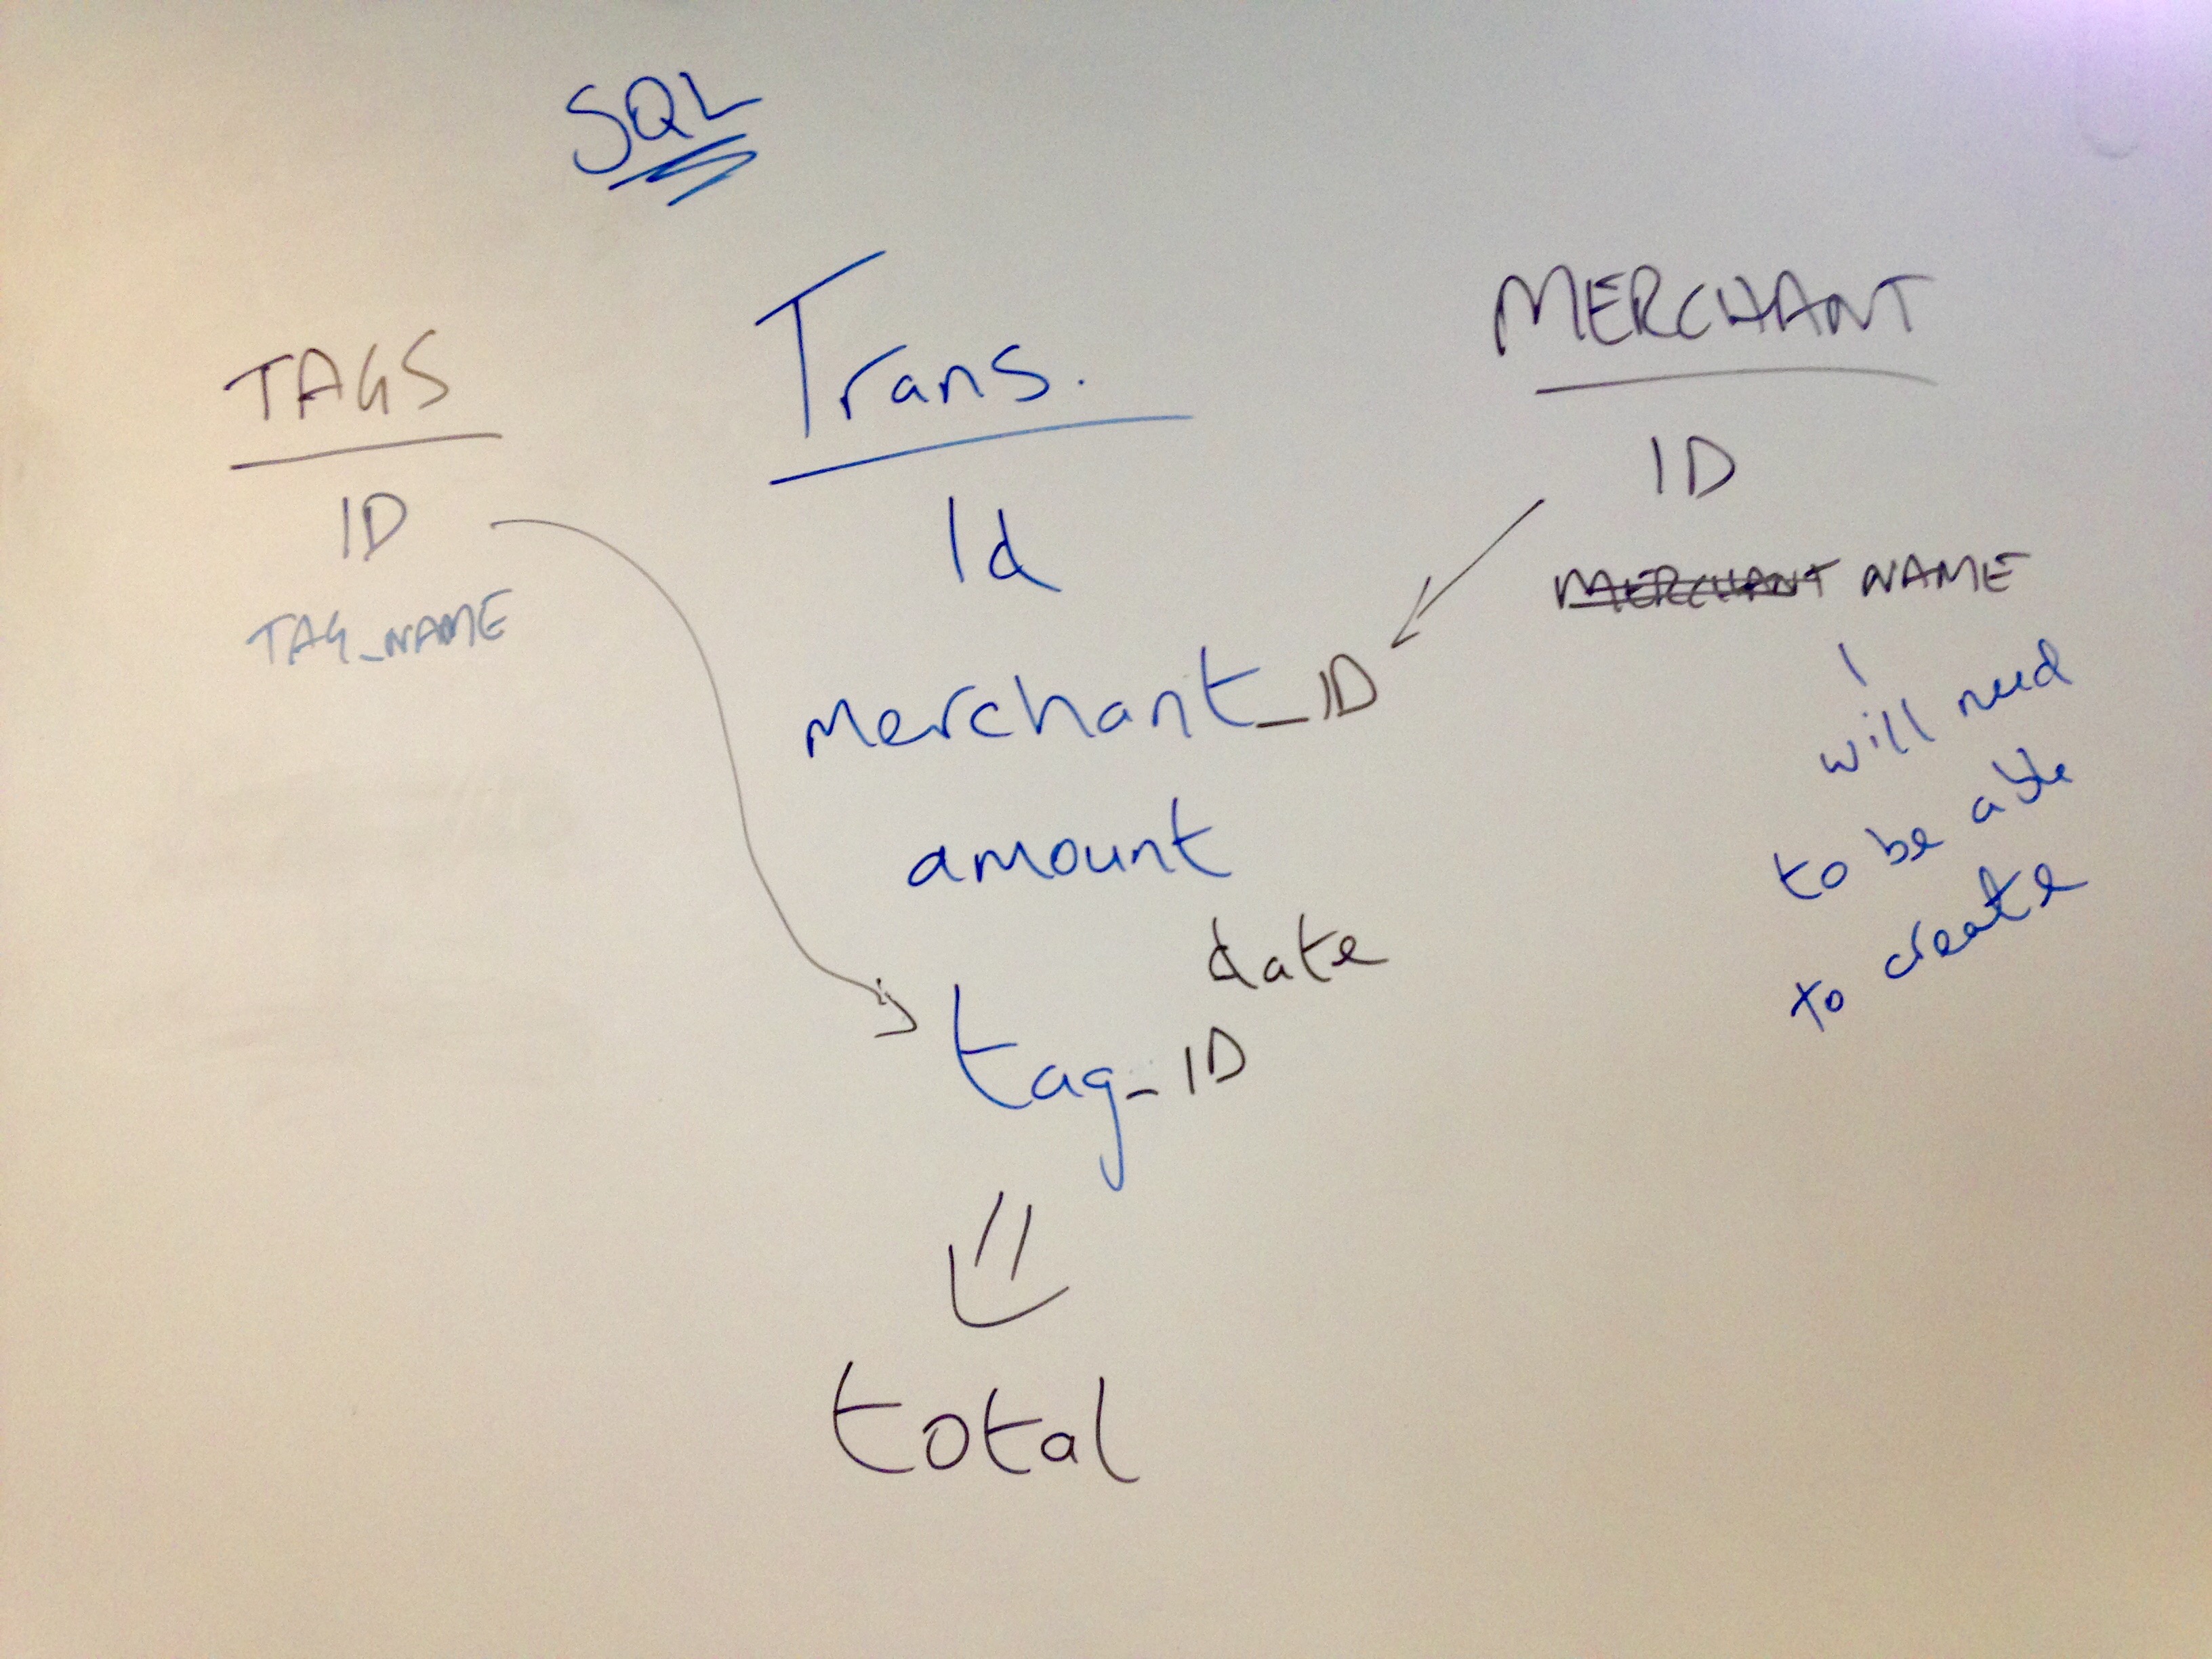 SQL
TAGS
ID
TAG_NAME
Trans.
Id
merchant_ID
amount
date
tag_ID
total
MERCHANT
ID
MERCHANT NAME
will need
to be able
to create